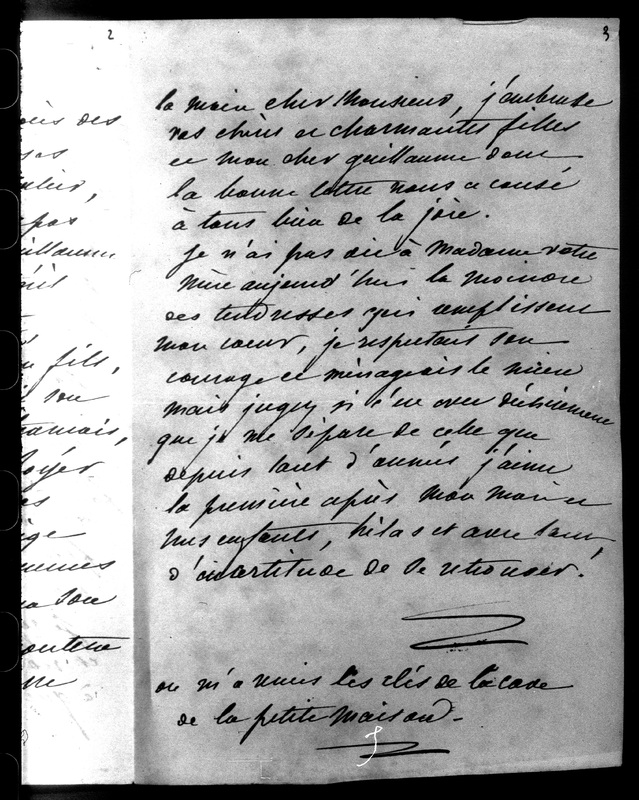 2
3
la main cher Monsieur, j'embrasse
vos chères et charmantes filles
et mon cher guillaume dont
la bonne lettre nous a causé
à tous bien de la joie.
Je n'ai pas dit à Madame votre
mère aujourd'hui la moindre
des tendresses qui remplissent
mon coeur, je respectais son
courage et ménageais le mien
mais jugez si c'est avec déchirement
que je me sépare de celle que
depuis tant d'années j'aime
la première après mon mari et
mes enfants, hélas et avec tant
d'incertitude de se retrouver!
on m'a remis les clés de la cave
de la petite maison.
ès des
pas
uillaume
fils,
son
son